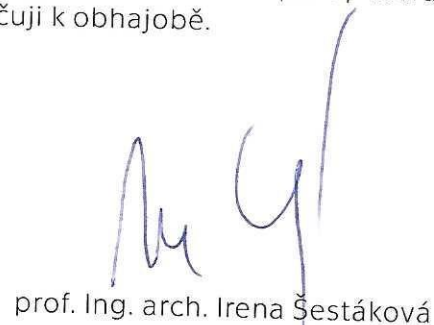 čuji k obhajobě.
prof. Ing. arch. Irena Šestáková